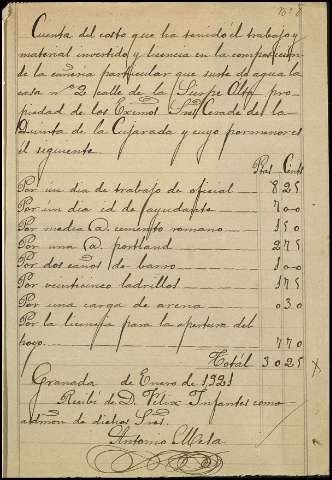 Nº 8
Cuenta del costo que ha tenido el trabajo y
material invertido y licencia en la composicion
de la cañeria particular que surte de agua la
casa nº 2 calle de la Sierpe Alta pro-
piedad de los Exmos Sres Conde de la
Quinta de la Enjarada y cuyo pormenor es
el siguiente.
Ptas Cents
Por un dia de trabajo de oficial 8 25
Por un dia id de ayudante 7 00
Por media @ cemento romano 1 50
Por una @ portland 2 75
Por dos caños de barro 1 00
Por veinticinco ladrillos 1 75
Por una carga de arena 0 30
Por la licencia para la apertura del
poyo 7 70
Total 30 25
Granada de Enero de 1921
Recibí de D. Felix Infantes como
admon de dichos Sres.
Antonio Mesa